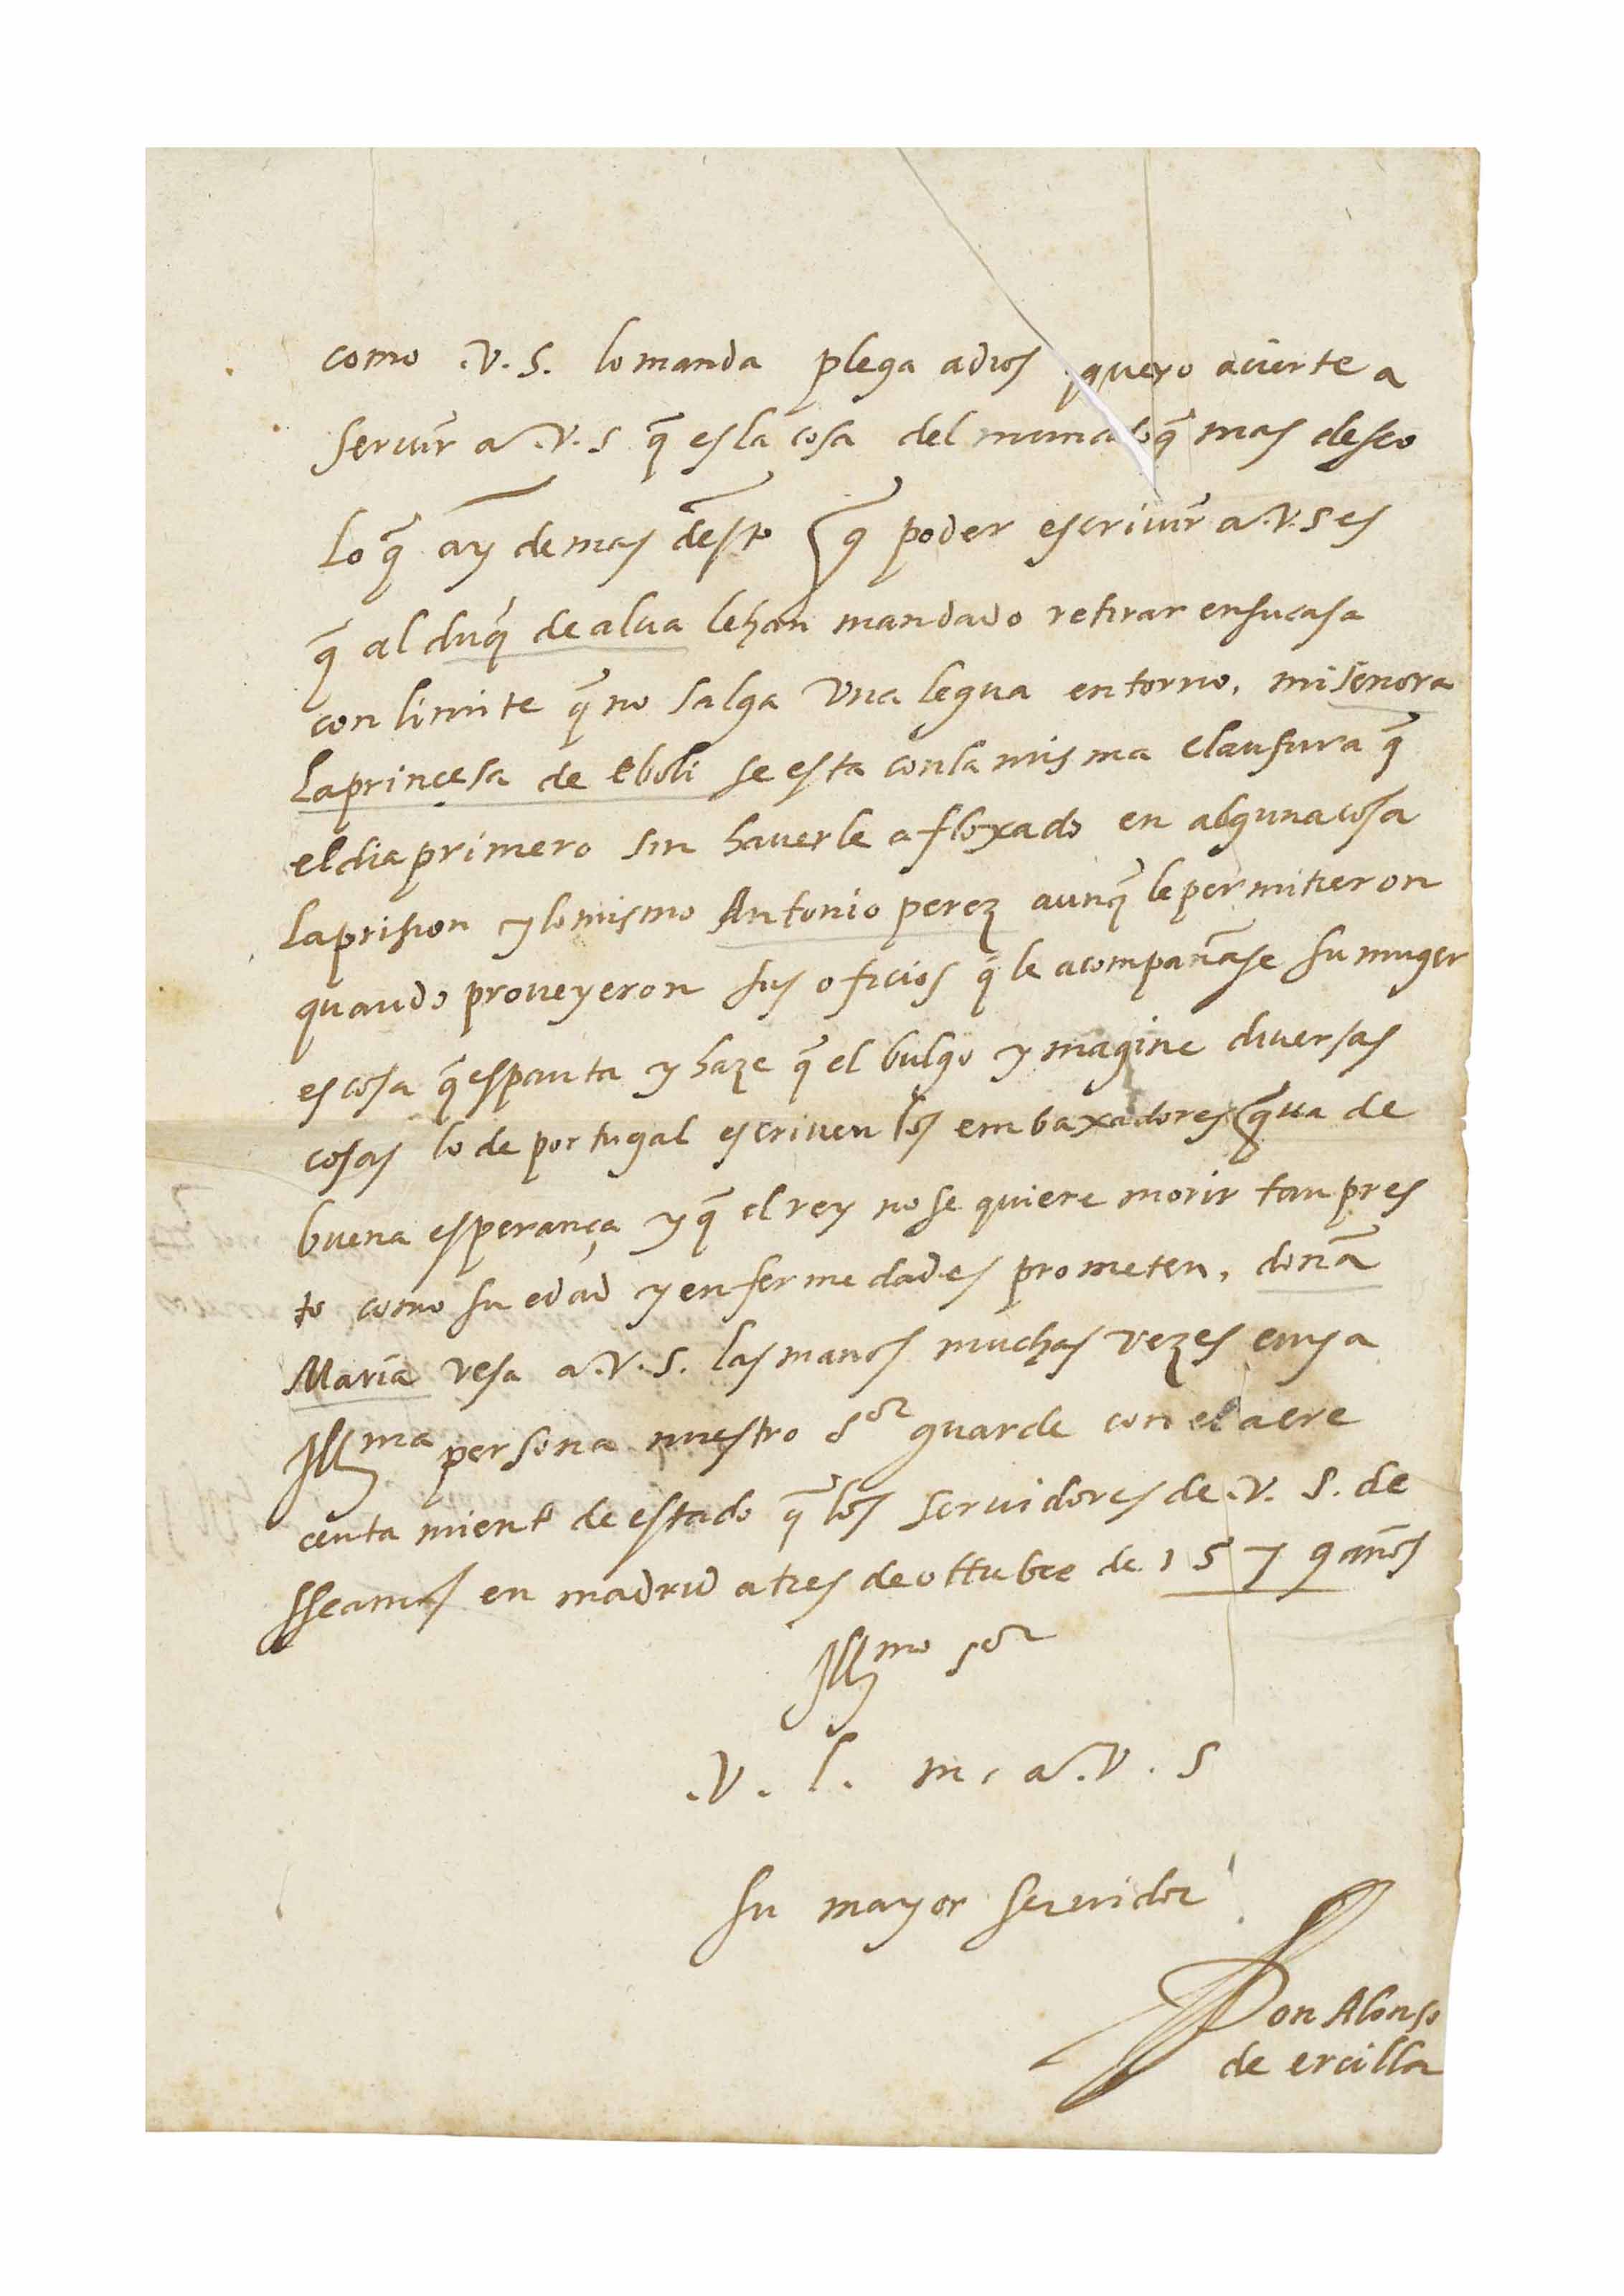 como .V.S. lo manda plega a dios que yo acierte a
servir a .V.S q̄ es la cosa del mundo q̄ mas deseo
lo q̄ ay de mas desto q̄ poder escrivir a .V.S es
q̄ al duq̄ de alua le han mandado retirar en su casa
con limite q̄ no salga vna legua en torno, mi señora
la princesa de eboli se esta con la misma clausura q̄
el dia primero sin hauerle afloxado en alguna cosa
la prision y lo mismo Antonio perez aunq̄ le permitieron
quando proueyeron sus oficios q̄ le acompañase su muger
es cosa q̄ espanta y haze q̄ el bulgo ymagine diversas
cosas lo de portugal escriuen los embaxadores q̄ va de
buena esperança y q̄ el rey no se quiere morir tan pres
to como su edad y enfermedades prometen, doña
Maria vesa a .V.S. las manos muchas vezes cuya
Illma persona nuestro Sor guarde con el acre
centamiento de estado q̄ los servidores de .V.S. de
sseamos en madrid a tres de ottubre de 1579 años
Illmo Sor
.V. l. m. a .V. S
su mayor servidor
Don Alonso
de ercilla